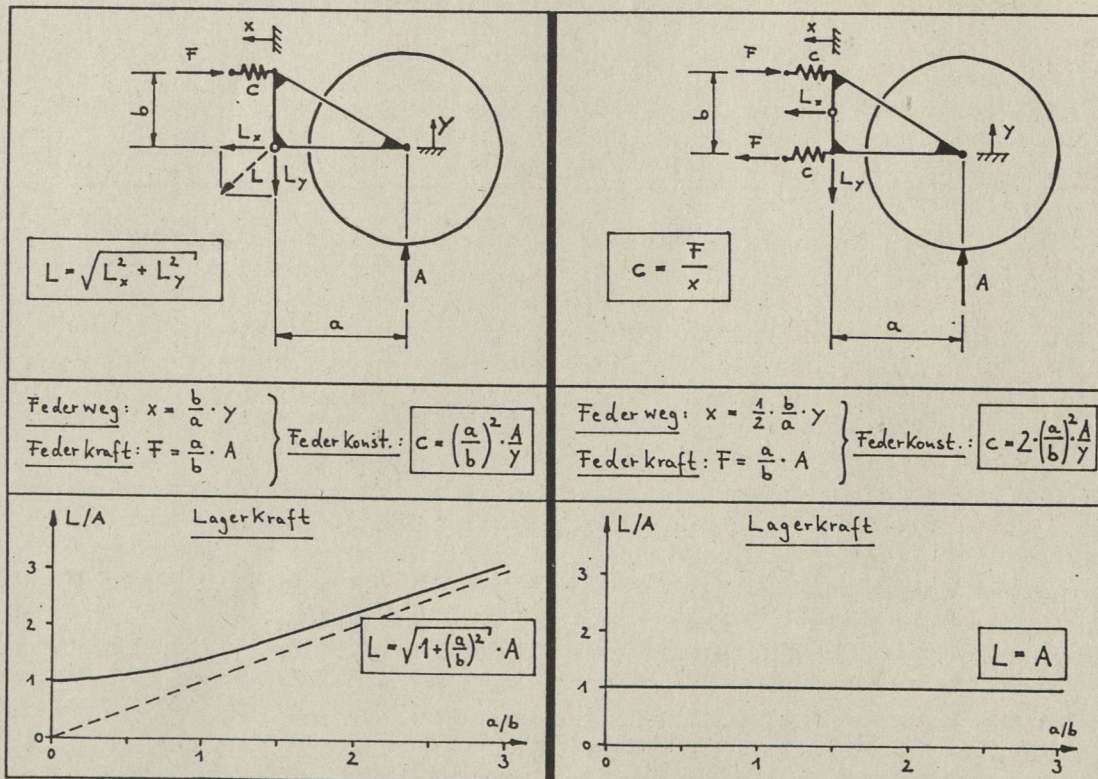 x
F
c
b
Lx
L
Ly
Y
A
a
L = √(Lx² + Ly²)
Federweg: x = b/a · y
Federkraft: F = a/b · A
Federkonst.: c = (a/b)² · A/y
L/A
Lagerkraft
3
2
1
0
L = √(1+(a/b)²) · A
a/b
0
1
2
3
x
F
c
b
Lx
F
c
Ly
Y
A
a
c = F/x
Federweg: x = 1/2 · b/a · y
Federkraft: F = a/b · A
Federkonst.: c = 2·(a/b)² · A/y
L/A
Lagerkraft
3
2
1
0
L = A
a/b
0
1
2
3